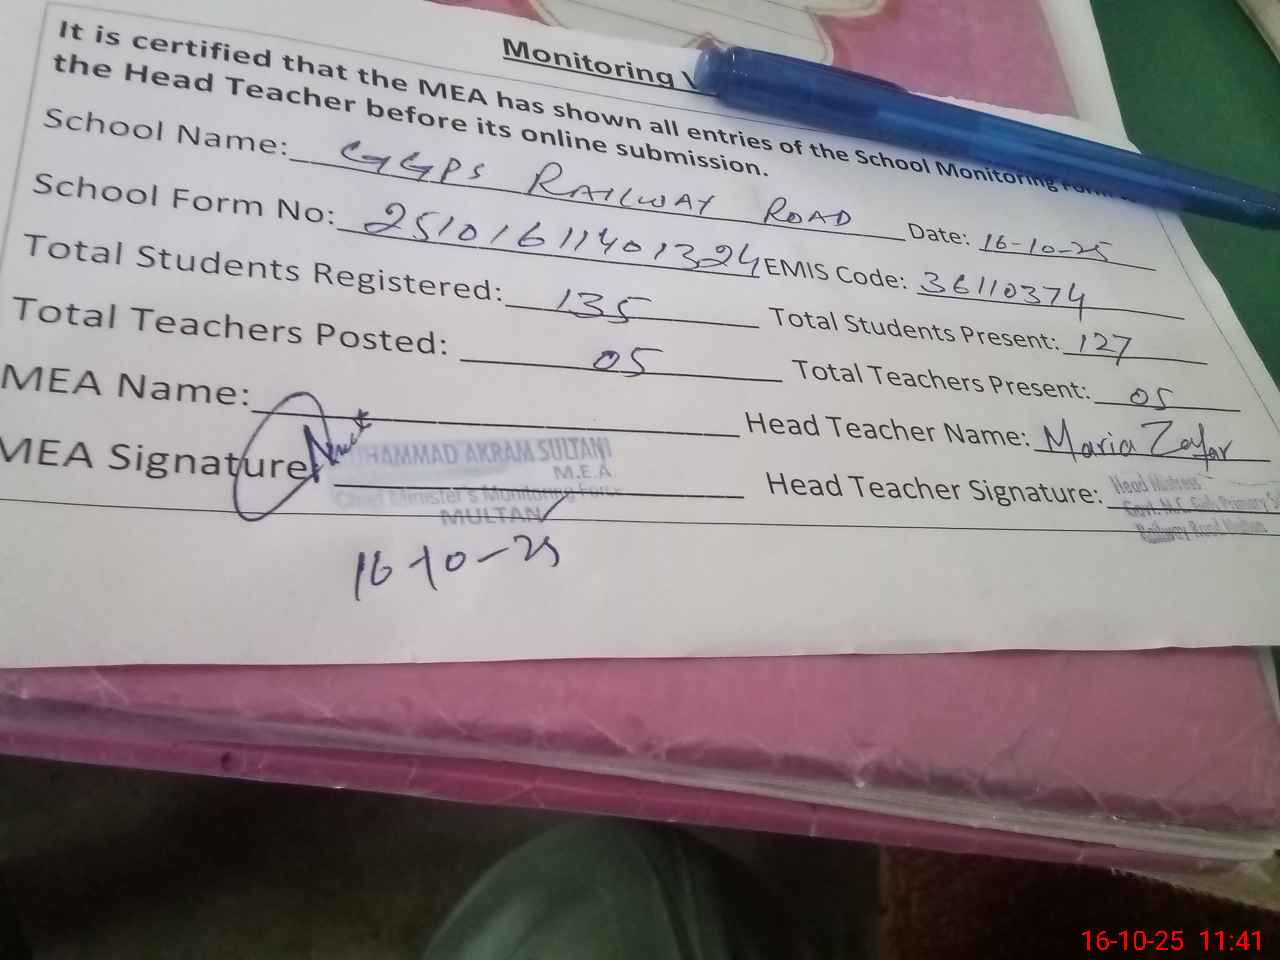 Monitoring V
It is certified that the MEA has shown all entries of the School Monitoring Form
the Head Teacher before its online submission.
School Name: GGPS RAILWAY ROAD Date: 16-10-25
School Form No: 2510161140 1324 EMIS Code: 36110374
Total Students Registered: 135 Total Students Present: 127
Total Teachers Posted: 05 Total Teachers Present: 05
MEA Name: Head Teacher Name: Maria Zafar
MEA Signature Head Teacher Signature:
HAMMAD AKRAM SULTANI
M.E.A
Chief Minister's Monitoring Force
MULTAN
Head Mistress
Govt. M.C. Girls Primary S
Railway Road Multan
16-10-25
16-10-25 11:41